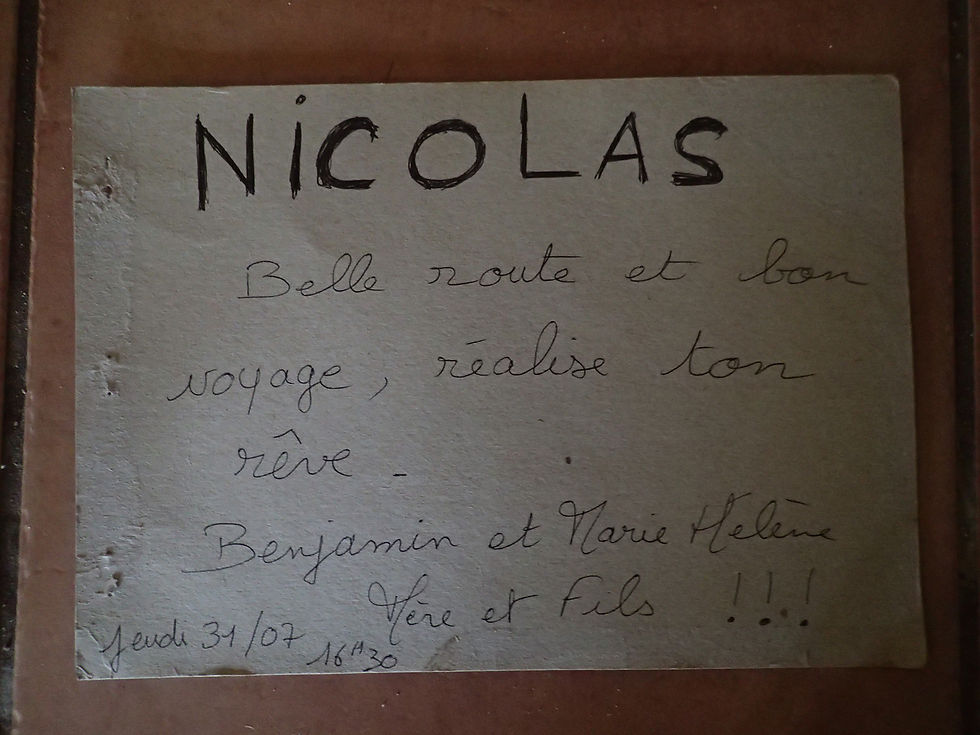 NiCOLAS
Belle route et bon
voyage, réalise ton
rêve -
Benjamin et Marie Helène
Mère et Fils !!!
Jeudi 31/07 16H30